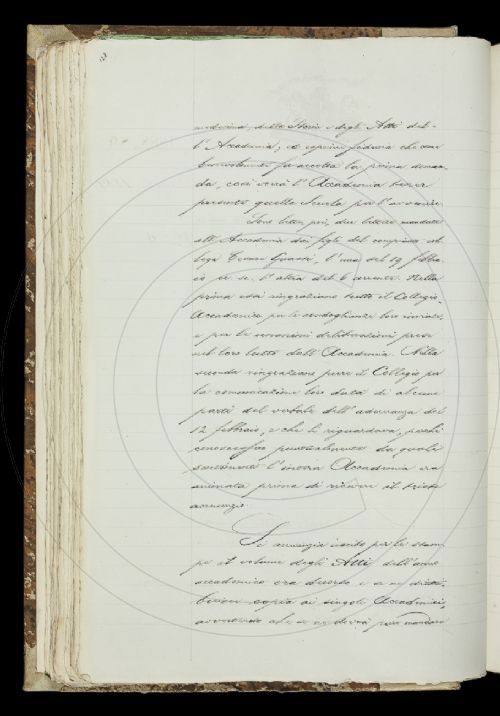 medesima, della Storia e degli Atti del-
l'Accademia, ed esprime fiducia che come
benevolmente fu accolta la prima doman-
da, così vorrà l'Accademia tener
presente quella Scuola per l'avvenire.
Sono letti poi, due lettere mandate
all'Accademia dai figli del compianto col-
lega Guasti, l'una del 19 febbra-
io, l'altra del 6 corrente. Nella
prima essi ringraziano tutto il Collegio
Accademico per le condoglianze loro inviate,
e per le deliberazioni prese
nel loro lutto dall'Accademia. Nella
seconda ringraziano pure il Collegio per
la comunicazione loro data di alcune
parti del verbale dell'adunanza del
12 febbraio, e che li riguardava, perché
conoscessero puntualmente da quale
sentimento l'intera Accademia era
animata prima di ricevere il triste
annunzio.
Si annunzia uscito per le stam-
pe il volume degli Atti dell'anno
accademico ora decorso e se ne distri-
buisce copia ai singoli Accademici,
avvertendo che se ne dovrà poi mandare